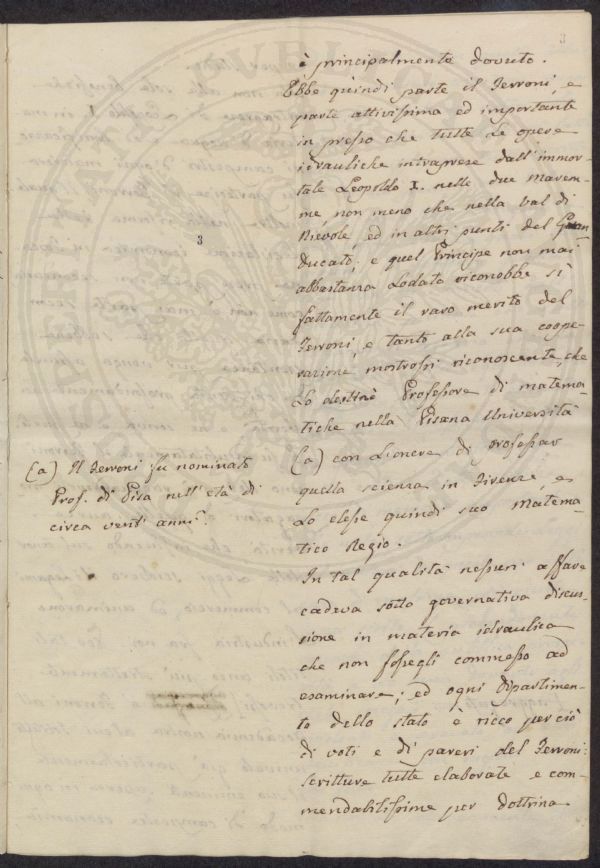 3
è principalmente dovuto.
Ebbe quindi parte il Ferroni, e
parte attivissima ed importante
in presso che tutte le opere
idrauliche intraprese dall'immor-
tale Leopoldo I. nelle due Marem-
me, non meno che nella val di
Nievole, ed in altri punti del Gran
Ducato; e quel Principe non mai
abbastanza lodato riconobbe sì
fattamente il raro merito del
Ferroni, e tanto alla sua coope-
razione mostrossi riconoscente, che
lo destinò Professore di matema-
tiche nella Pisana Università
(a) con l'onere di professar
quella scienza in Firenze, e
lo elesse quindi suo Matema-
tico Regio.
In tal qualità nessun affare
cadeva sotto governativa discus-
sione in materia idraulica
che non fossegli commesso ad
esaminare; ed ogni dipartimen-
to dello stato è ricco perciò
di voti e di pareri del Ferroni:
scritture tutte elaborate e com-
mendabilissime per dottrina
3
(a) Il Ferroni fu nominato
Prof. di Pisa nell'età di
circa venti anni.